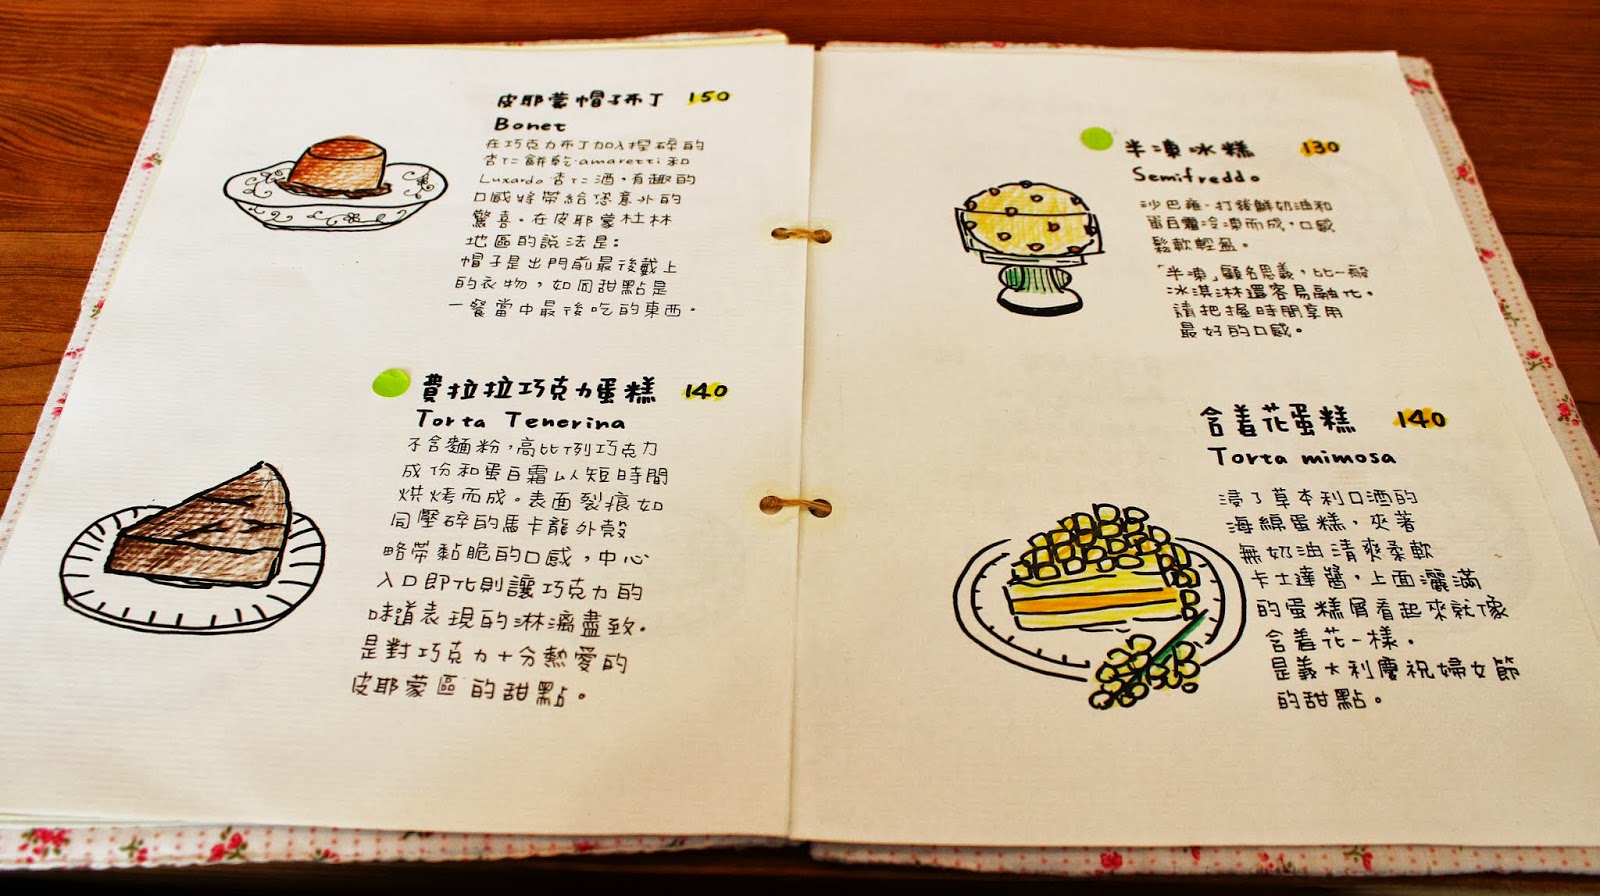 皮耶蒙帽子布丁 150
Bonet
在巧克力布丁加入捏碎的
杏仁餅乾·amaretti和
Luxardo杏仁酒,有趣的
口感將帶給您意外的
驚喜。在皮耶蒙杜林
地區的說法是:
帽子是出門前最後戴上
的衣物,如同甜點是
一餐當中最後吃的東西。
費拉拉巧克力蛋糕 140
Torta Tenerina
不含麵粉,高比例巧克力
成份和蛋白霜以短時間
烘烤而成。表面裂痕如
同壓碎的馬卡龍外殼
略帶黏脆的口感,中心
入口即化則讓巧克力的
味道表現的淋漓盡致。
是對巧克力十分熱愛的
皮耶蒙區的甜點。
半凍冰糕 130
Semifreddo
沙巴雍·打發鮮奶油和
蛋白霜冷凍而成,口感
鬆軟輕盈。
「半凍」顧名思義,比一般
冰淇淋還容易融化,
請把握時間享用
最好的口感。
含羞花蛋糕 140
Torta mimosa
浸了草本利口酒的
海綿蛋糕,夾著
無奶油清爽柔軟
卡士達醬,上面灑滿
的蛋糕屑看起來就像
含羞花一樣.
是義大利慶祝婦女節
的甜點。